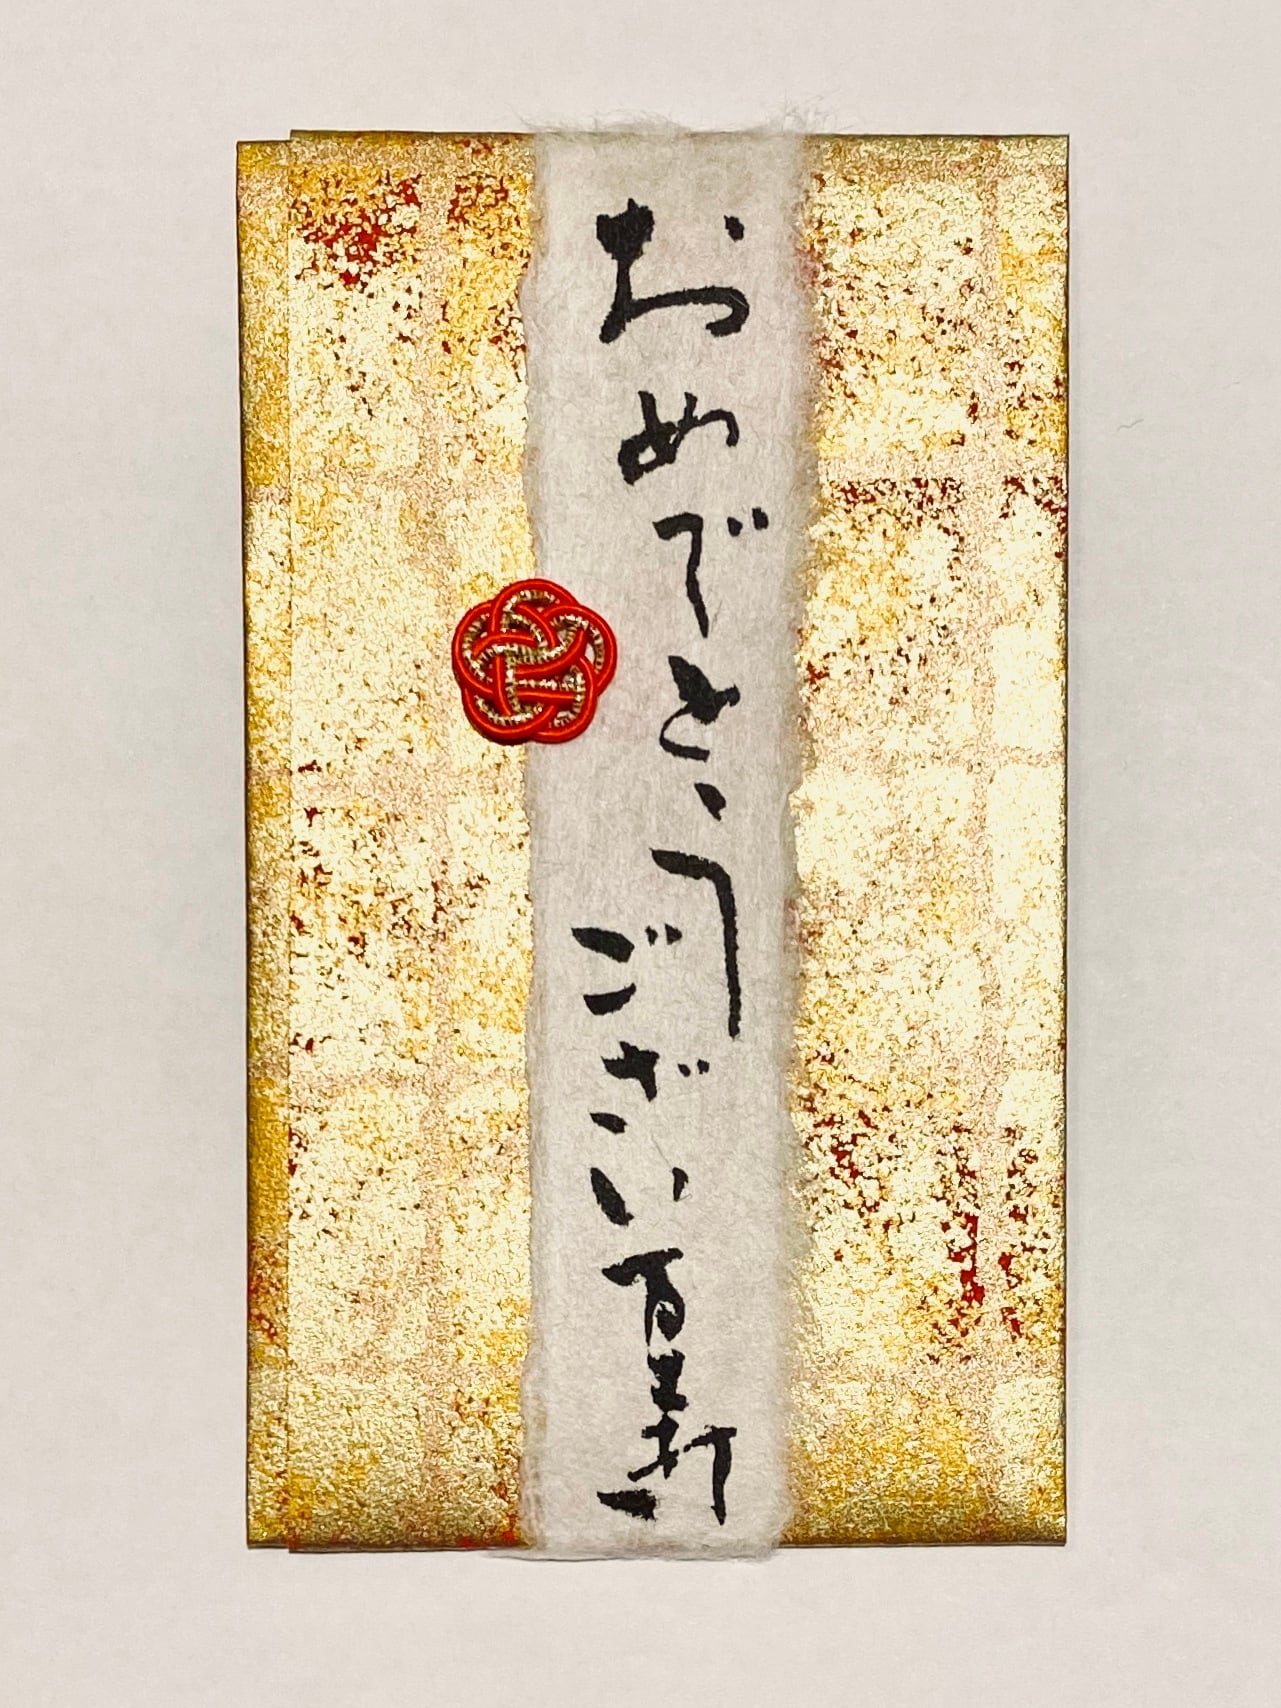 おめでとう
ござい万寿